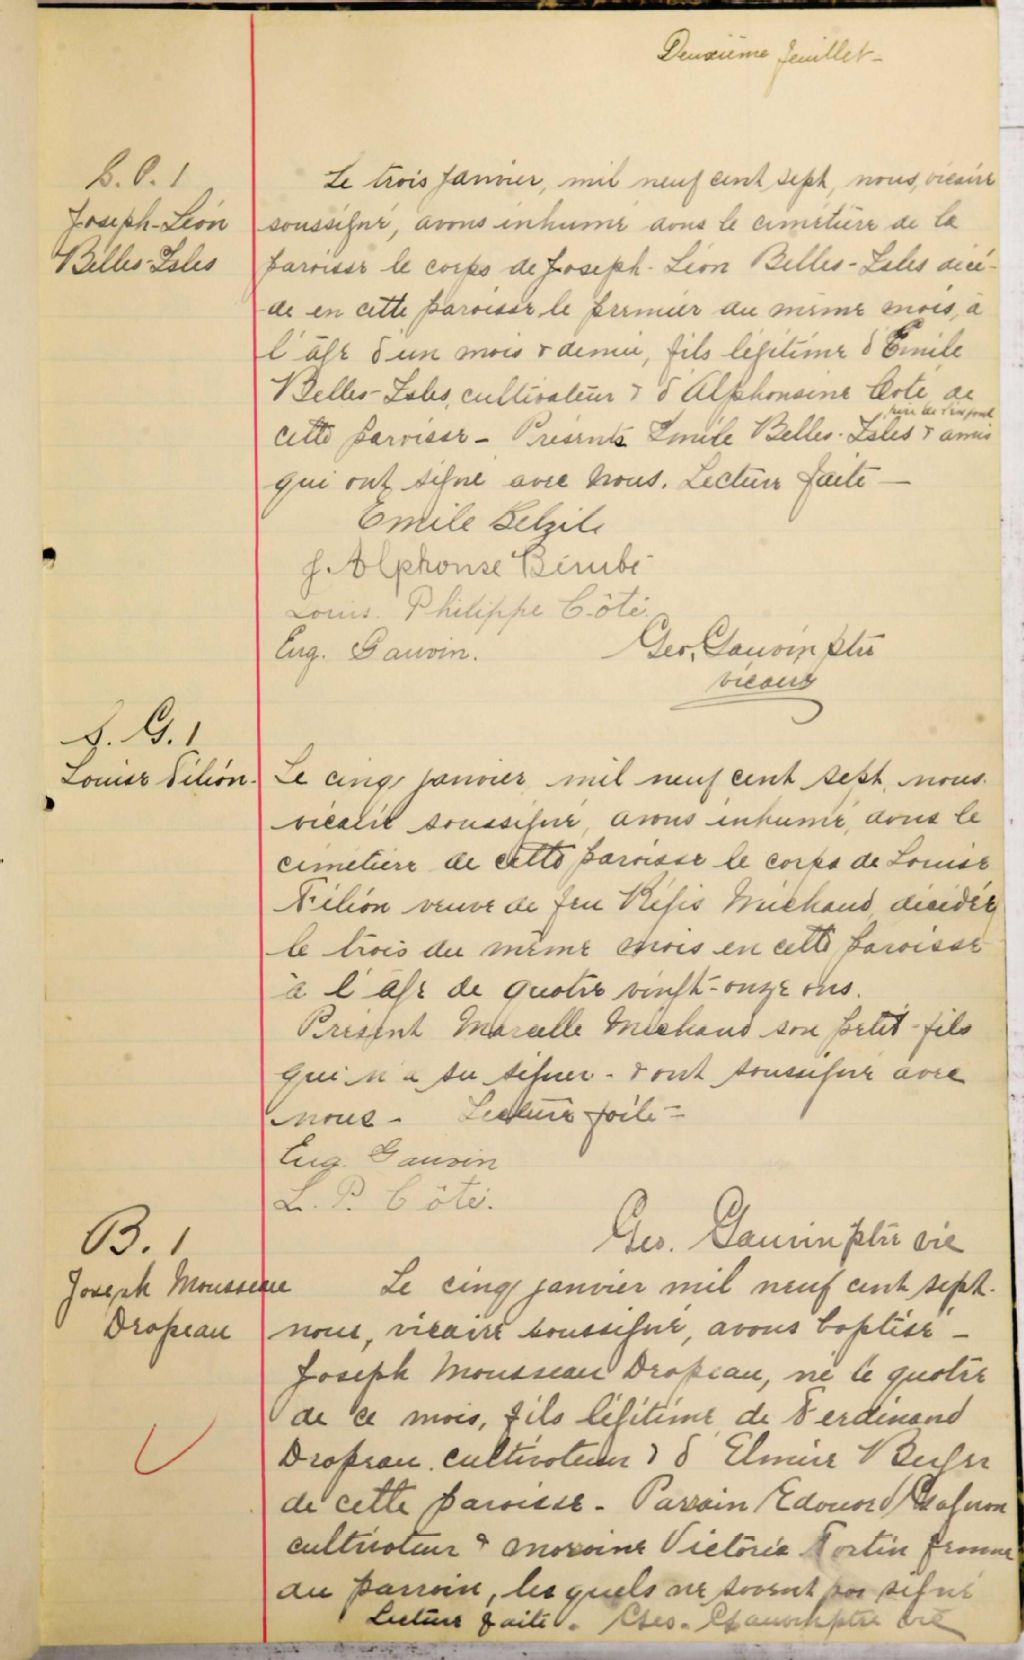 Deuxième feuillet -
S. P. 1
Joseph-Léon
Belles-Isles
Le trois Janvier, mil neuf cent sept, nous, vicaire
soussigné, avons inhumé dans le cimetière de la
paroisse le corps de Joseph-Léon Belles-Isles décé-
dé en cette paroisse le premier du même mois, à
l'âge d'un mois & demi, fils légitime d'Emile
Belles-Isles, cultivateur & d'Alphonsine Coté de
père de l'enfant
cette paroisse - Présents Emile Belles-Isles & amis
qui ont signé avec nous. Lecture faite —
Emile Belzile
J. Alphonse Bérubé
Louis. Philippe Côté
Eug. Gauvin.
Geo. Gauvin ptre
vicaire
S. G. 1
Louise Filion.
Le cinq janvier mil neuf cent sept, nous
vicaire soussigné, avons inhumé, dans le
cimetière de cette paroisse le corps de Louise
Filion veuve de feu Régis Michaud décédée
le trois du même mois en cette paroisse
à l'âge de quatre vingt-onze ans.
Présent Marcelle Michaud son petit-fils
qui n'a su signer - & ont soussigné avec
nous - Lecture faite -
Eug. Gauvin
L. P. Côté.
Geo. Gauvin ptre vic
B. 1
Joseph Mousseau
Drapeau
Le cinq janvier mil neuf cent sept.
nous, vicaire soussigné, avons baptisé -
Joseph Mousseau Drapeau, né le quatre
de ce mois, fils légitime de Ferdinand
Drapeau cultivateur & d'Elmire
de cette paroisse - Parrain Edouard Gagnon
cultivateur & marraine Victoria Fortin femme
du parrain, lesquels ne savent pas signé
Lecture faite. Geo. Gauvin ptre vic